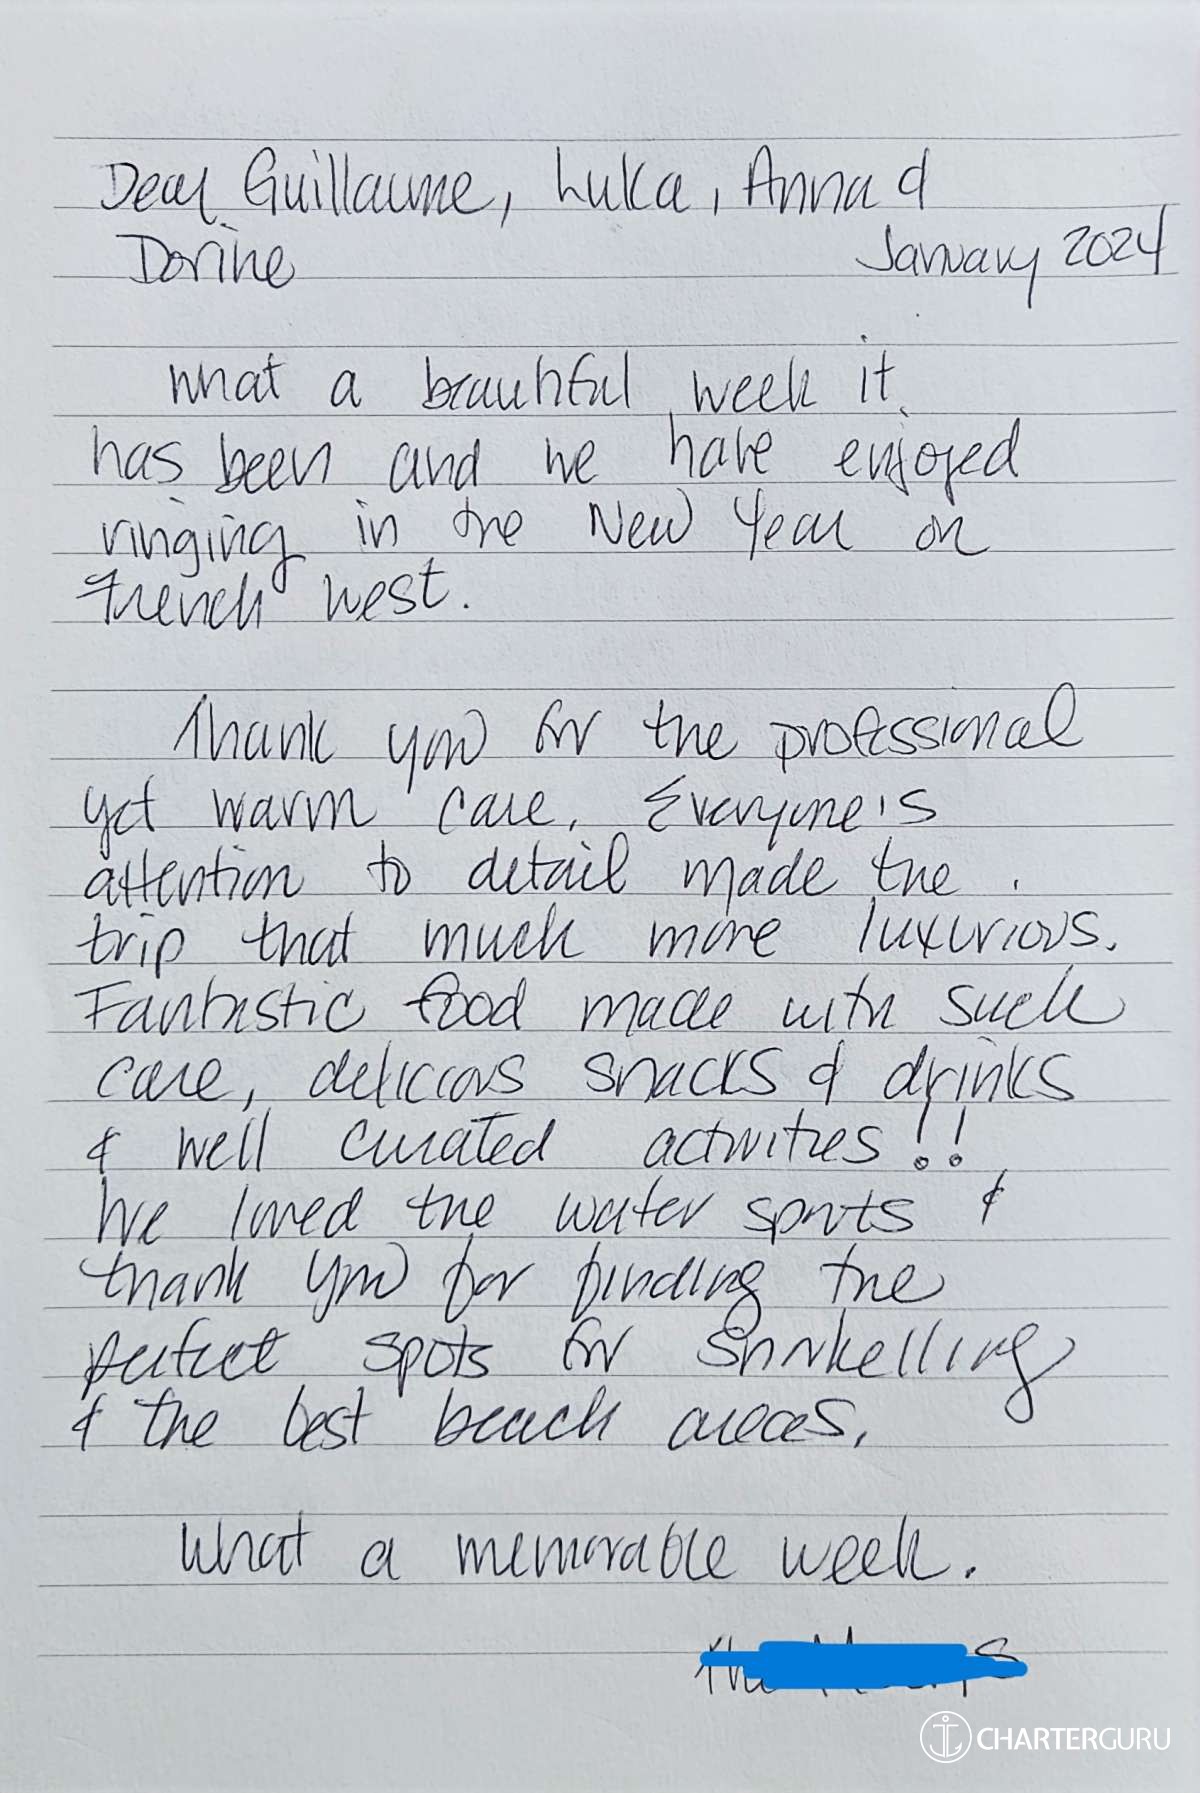 Dear Guillaume, Luka, Anna &
Dorine
January 2024
What a beautiful week it
has been and we have enjoyed
ringing in the New Year on
French West.
Thank you for the professional
yet warm care. Everyone's
attention to detail made the
trip that much more luxurious.
Fantastic food made with such
care, delicious snacks & drinks
& well curated activities!!
We loved the water sports &
thank you for finding the
perfect spots for snorkelling
& the best beach areas.
What a memorable week.
The
CHARTERGURU